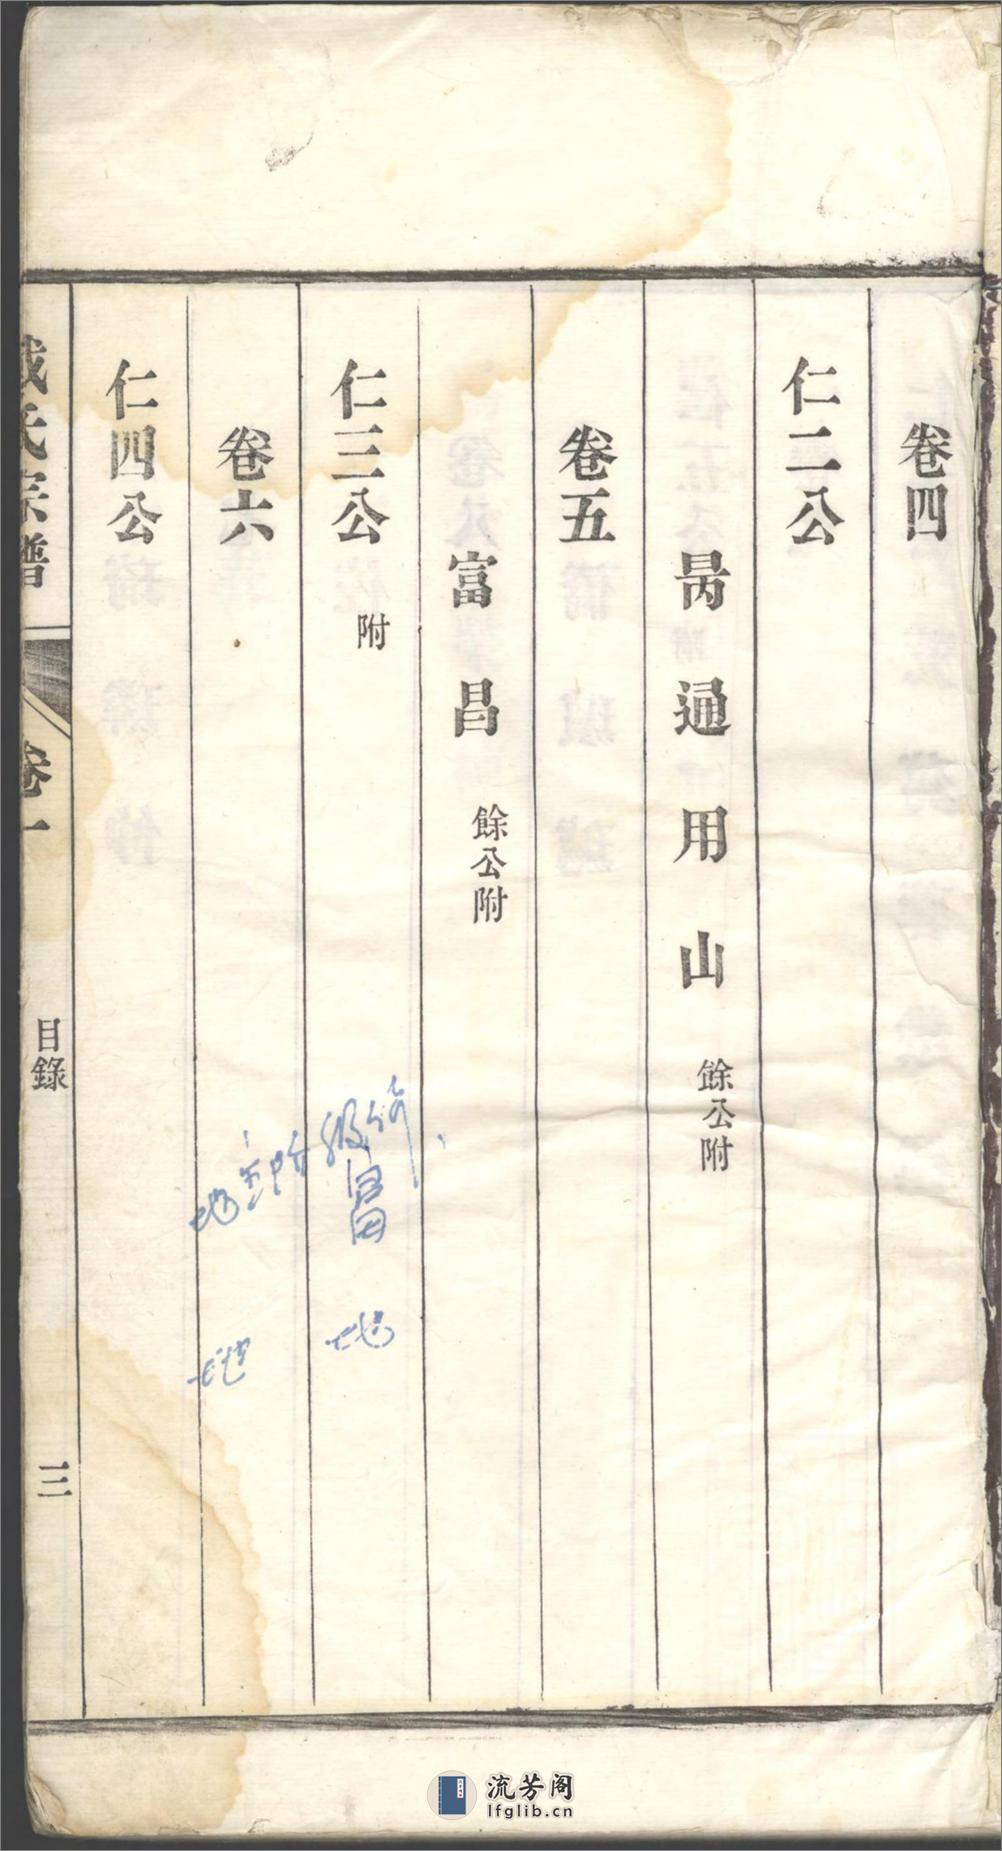 卷四
仁二公
昺通用山 餘公附
卷五
富昌 餘公附
仁三公 附
卷六
仁四公
氏宗譜
卷一
目錄
三
地
地
流芳阁
lfglib.cn